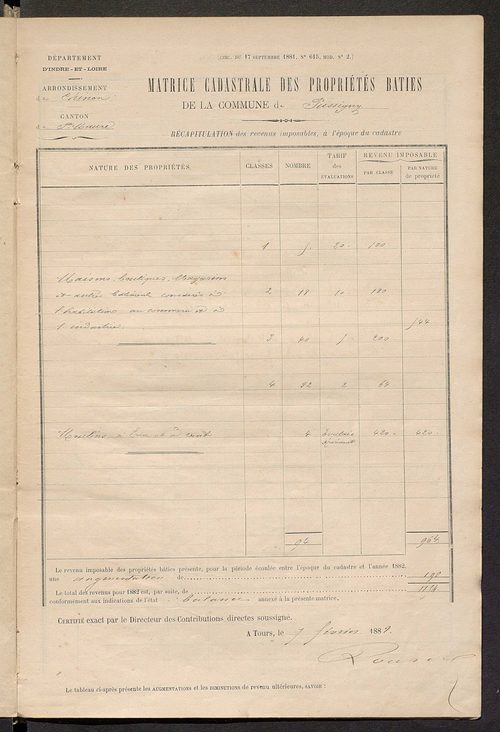 DÉPARTEMENT
D'INDRE-ET-LOIRE
ARRONDISSEMENT
de Chinon
CANTON
de Ste Maure
(CIRC. DU 17 SEPTEMBRE 1881, N° 615, MOD. N° 2.)
MATRICE CADASTRALE DES PROPRIÉTÉS BATIES
DE LA COMMUNE de Pussigny
RÉCAPITULATION des revenus imposables, à l'époque du cadastre
NATURE DES PROPRIÉTÉS. CLASSES NOMBRE TARIF des ÉVALUATIONS REVENU IMPOSABLE
PAR CLASSE PAR NATURE de propriété
1 5 20 100
Maisons, boutiques, Magasins
et autres bâtiments consacrés à 2 18 10 180
l'habitation au commerce et à
l'industrie. 544
3 40 5 200
4 32 2 64
Moulins à Eau et à vent 4 420 420
94 964
Le revenu imposable des propriétés bâties présente, pour la période écoulée entre l'époque du cadastre et l'année 1882,
une augmentation de
Le total des revenus pour 1882 est, par suite, de
conformément aux indications de l'état balance annexé à la présente matrice.
CERTIFIÉ exact par le Directeur des Contributions directes soussigné.
A Tours, le 7 février 1882.
Le tableau ci-après présente les AUGMENTATIONS et les DIMINUTIONS de revenu ultérieures, SAVOIR :